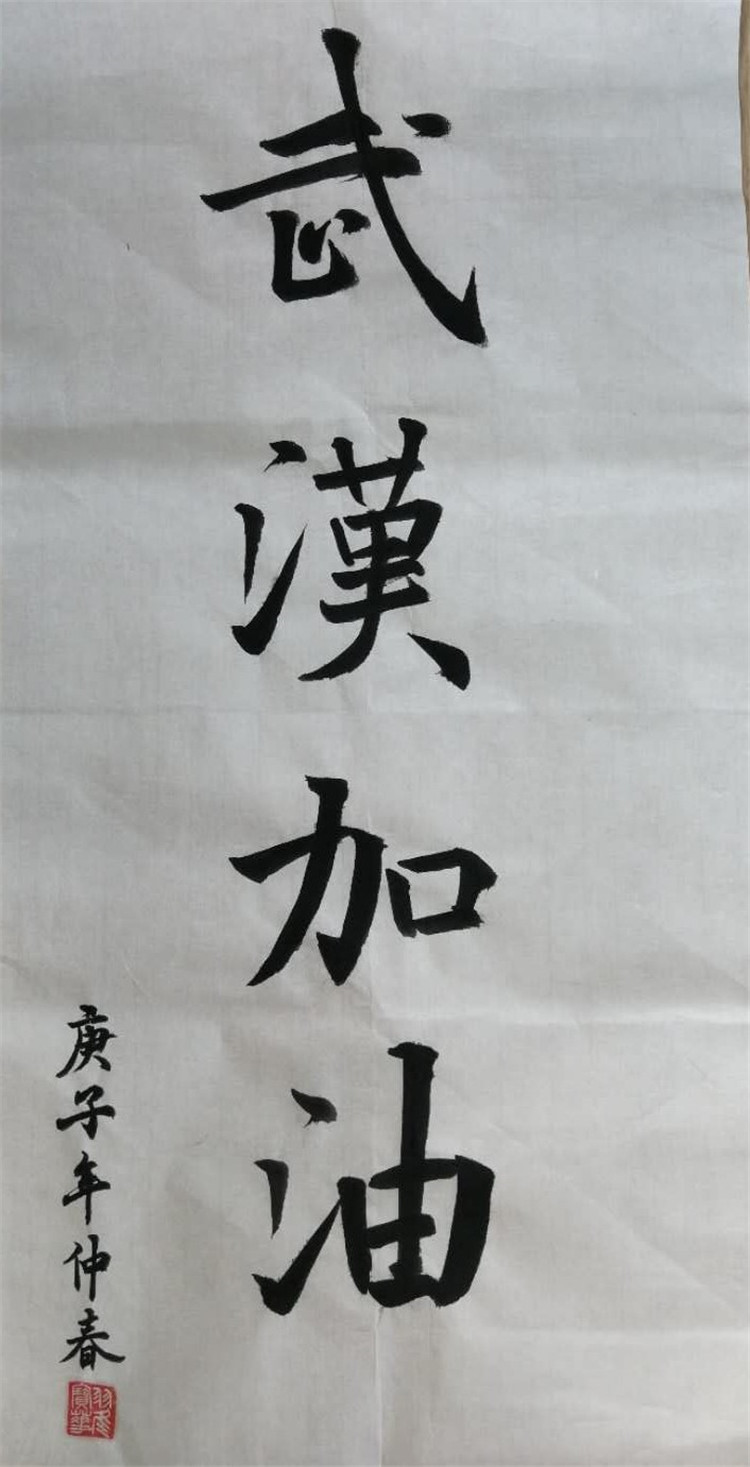 武漢加油
庚子年仲春